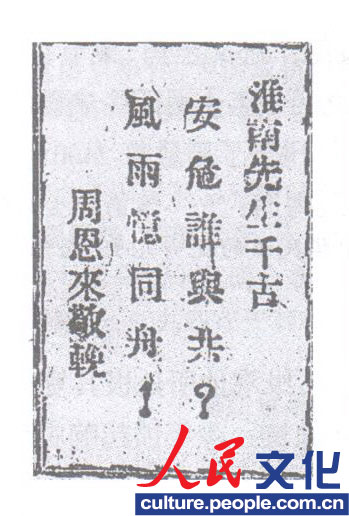 淮南先生千古
安危誰與共？
風雨憶同舟！
周恩來敬輓
人民文化
culture.people.com.cn